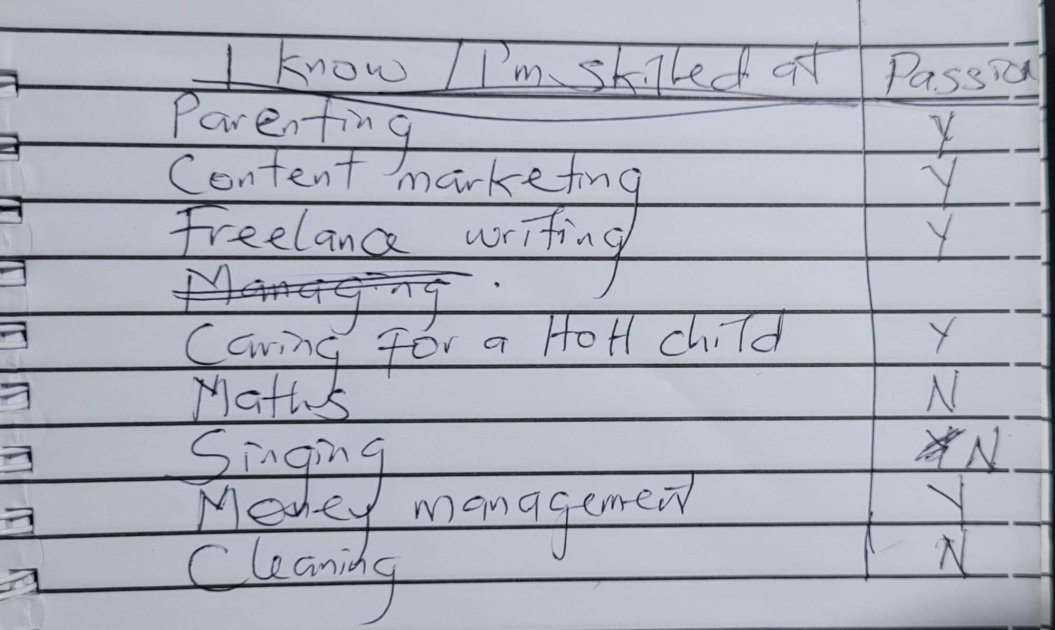 I know / I'm skilled at Passion
Parenting Y
Content marketing Y
Freelance writing Y
Managing .
Caring for a HoH child Y
Maths N
Singing Y N
Money management Y
Cleaning N